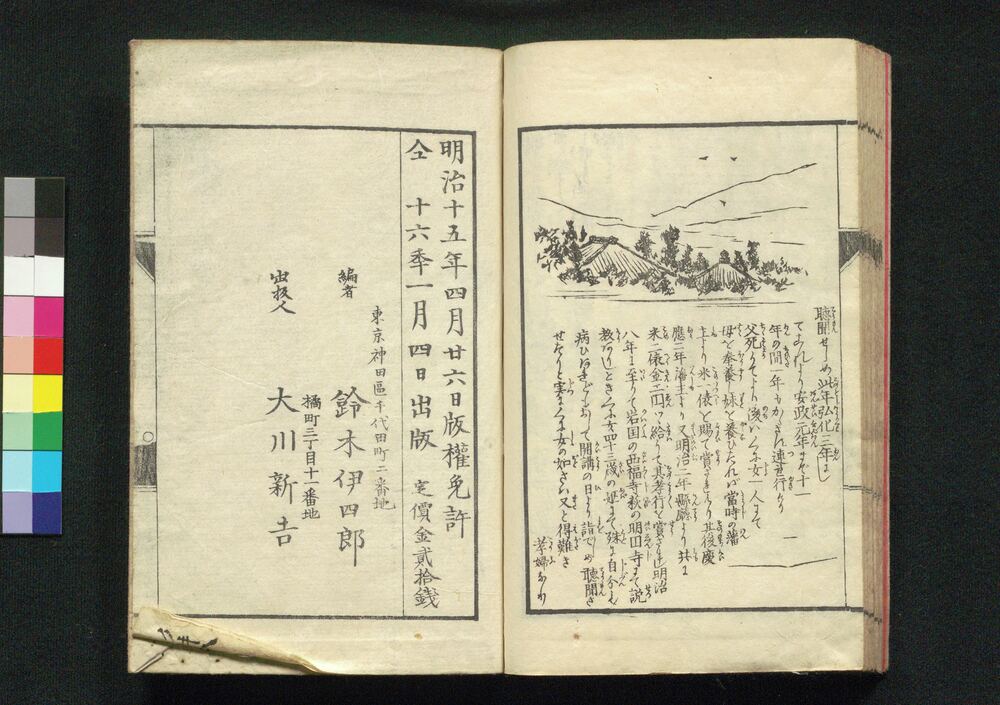 聽聞せしめ此年弘化三年に
てこれより安政元年まで十一
年の間一年もかゝさず連並行けり
父死してより後ハくめ女一人にて
母を奉養し妹を養ひたれバ當時の藩
主より米一俵を賜て賞さえたり其後慶
應二年藩主より又明治二年縣廳より共に
米二俵金二円を給りて其孝行を賞さる明治
八年に至りて岩国の西福寺萩の明円寺まで説
教ありしときくめ女四十三歳の
病ひありて開講の日より詣でゝ聽聞さ
せたりと実にくめ女の如きハ又と得難き
孝婦なり
明治十五年四月廿六日版權免許
仝 十六季一月四日出版 定價金貳拾錢
東京神田區千代田町二番地
編者 鈴木伊四郎
橘町三丁目十一番地
出版人 大川新吉